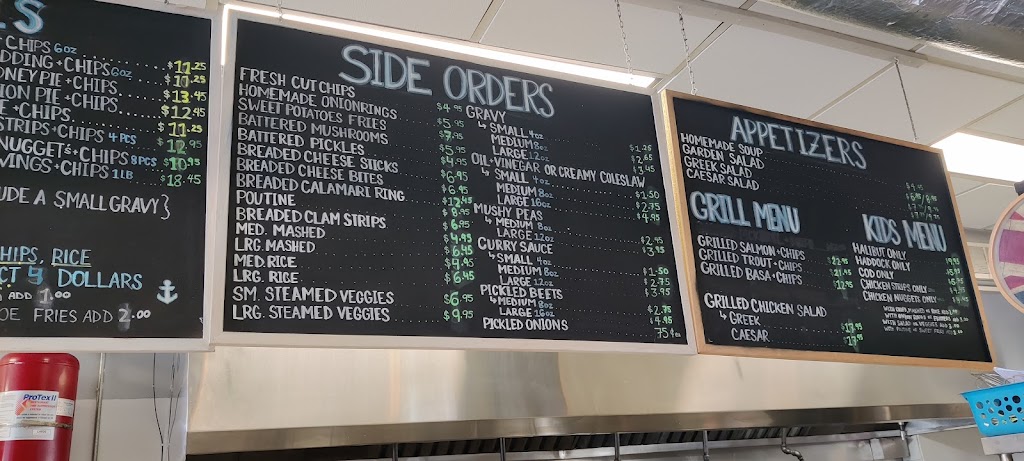 LS
CHIPS 6oz $11.25
DDING + CHIPS 6oz $11.25
ONEY PIE + CHIPS $13.45
ION PIE + CHIPS $12.45
E + CHIPS $11.25
STRIPS + CHIPS 4 PCS
NUGGETS + CHIPS 8 PCS $10.95
WINGS + CHIPS 1LB $18.45
UDE A SMALL GRAVY}
CHIPS, RICE
CT 4 DOLLARS
ADD 1.00
OE FRIES ADD 2.00
ProTex II
SIDE ORDERS
FRESH CUT CHIPS $4.95
HOMEMADE ONION RINGS $5.95
SWEET POTATOES FRIES $7.95
BATTERED MUSHROOMS $5.95
BATTERED PICKLES $4.95
BREADED CHEESE STICKS $6.95
BREADED CHEESE BITES $6.45
BREADED CALAMARI RING $12.45
POUTINE $8.95
BREADED CLAM STRIPS $6.95
MED. MASHED $4.95
LRG. MASHED $6.45
MED. RICE $4.95
LRG. RICE $6.45
SM. STEAMED VEGGIES $6.95
LRG. STEAMED VEGGIES $9.95
GRAVY
↳ SMALL 4oz $1.25
MEDIUM 8oz $2.65
LARGE 12oz $3.45
OIL+VINEGAR OR CREAMY COLESLAW
↳ SMALL 4oz $1.50
MEDIUM 8oz $2.75
LARGE 16oz $4.95
MUSHY PEAS
↳ MEDIUM 8oz $2.75
LARGE 12oz $3.95
CURRY SAUCE
↳ SMALL 4oz $1.50
MEDIUM 8oz $2.75
LARGE 12oz $3.95
PICKLED BEETS
↳ MEDIUM 8oz $2.75
LARGE 16oz $4.95
PICKLED ONIONS 75¢ ea
APPETIZERS
HOMEMADE SOUP
GARDEN SALAD
GREEK SALAD
CAESAR SALAD
GRILL MENU
GRILLED SALMON + CHIPS
GRILLED TROUT + CHIPS
GRILLED BASA + CHIPS
GRILLED CHICKEN SALAD
↳ GREEK
CAESAR
KIDS MENU
HALIBUT ONLY
HADDOCK ONLY
COD ONLY
CHICKEN STRIPS ONLY
CHICKEN NUGGETS ONLY